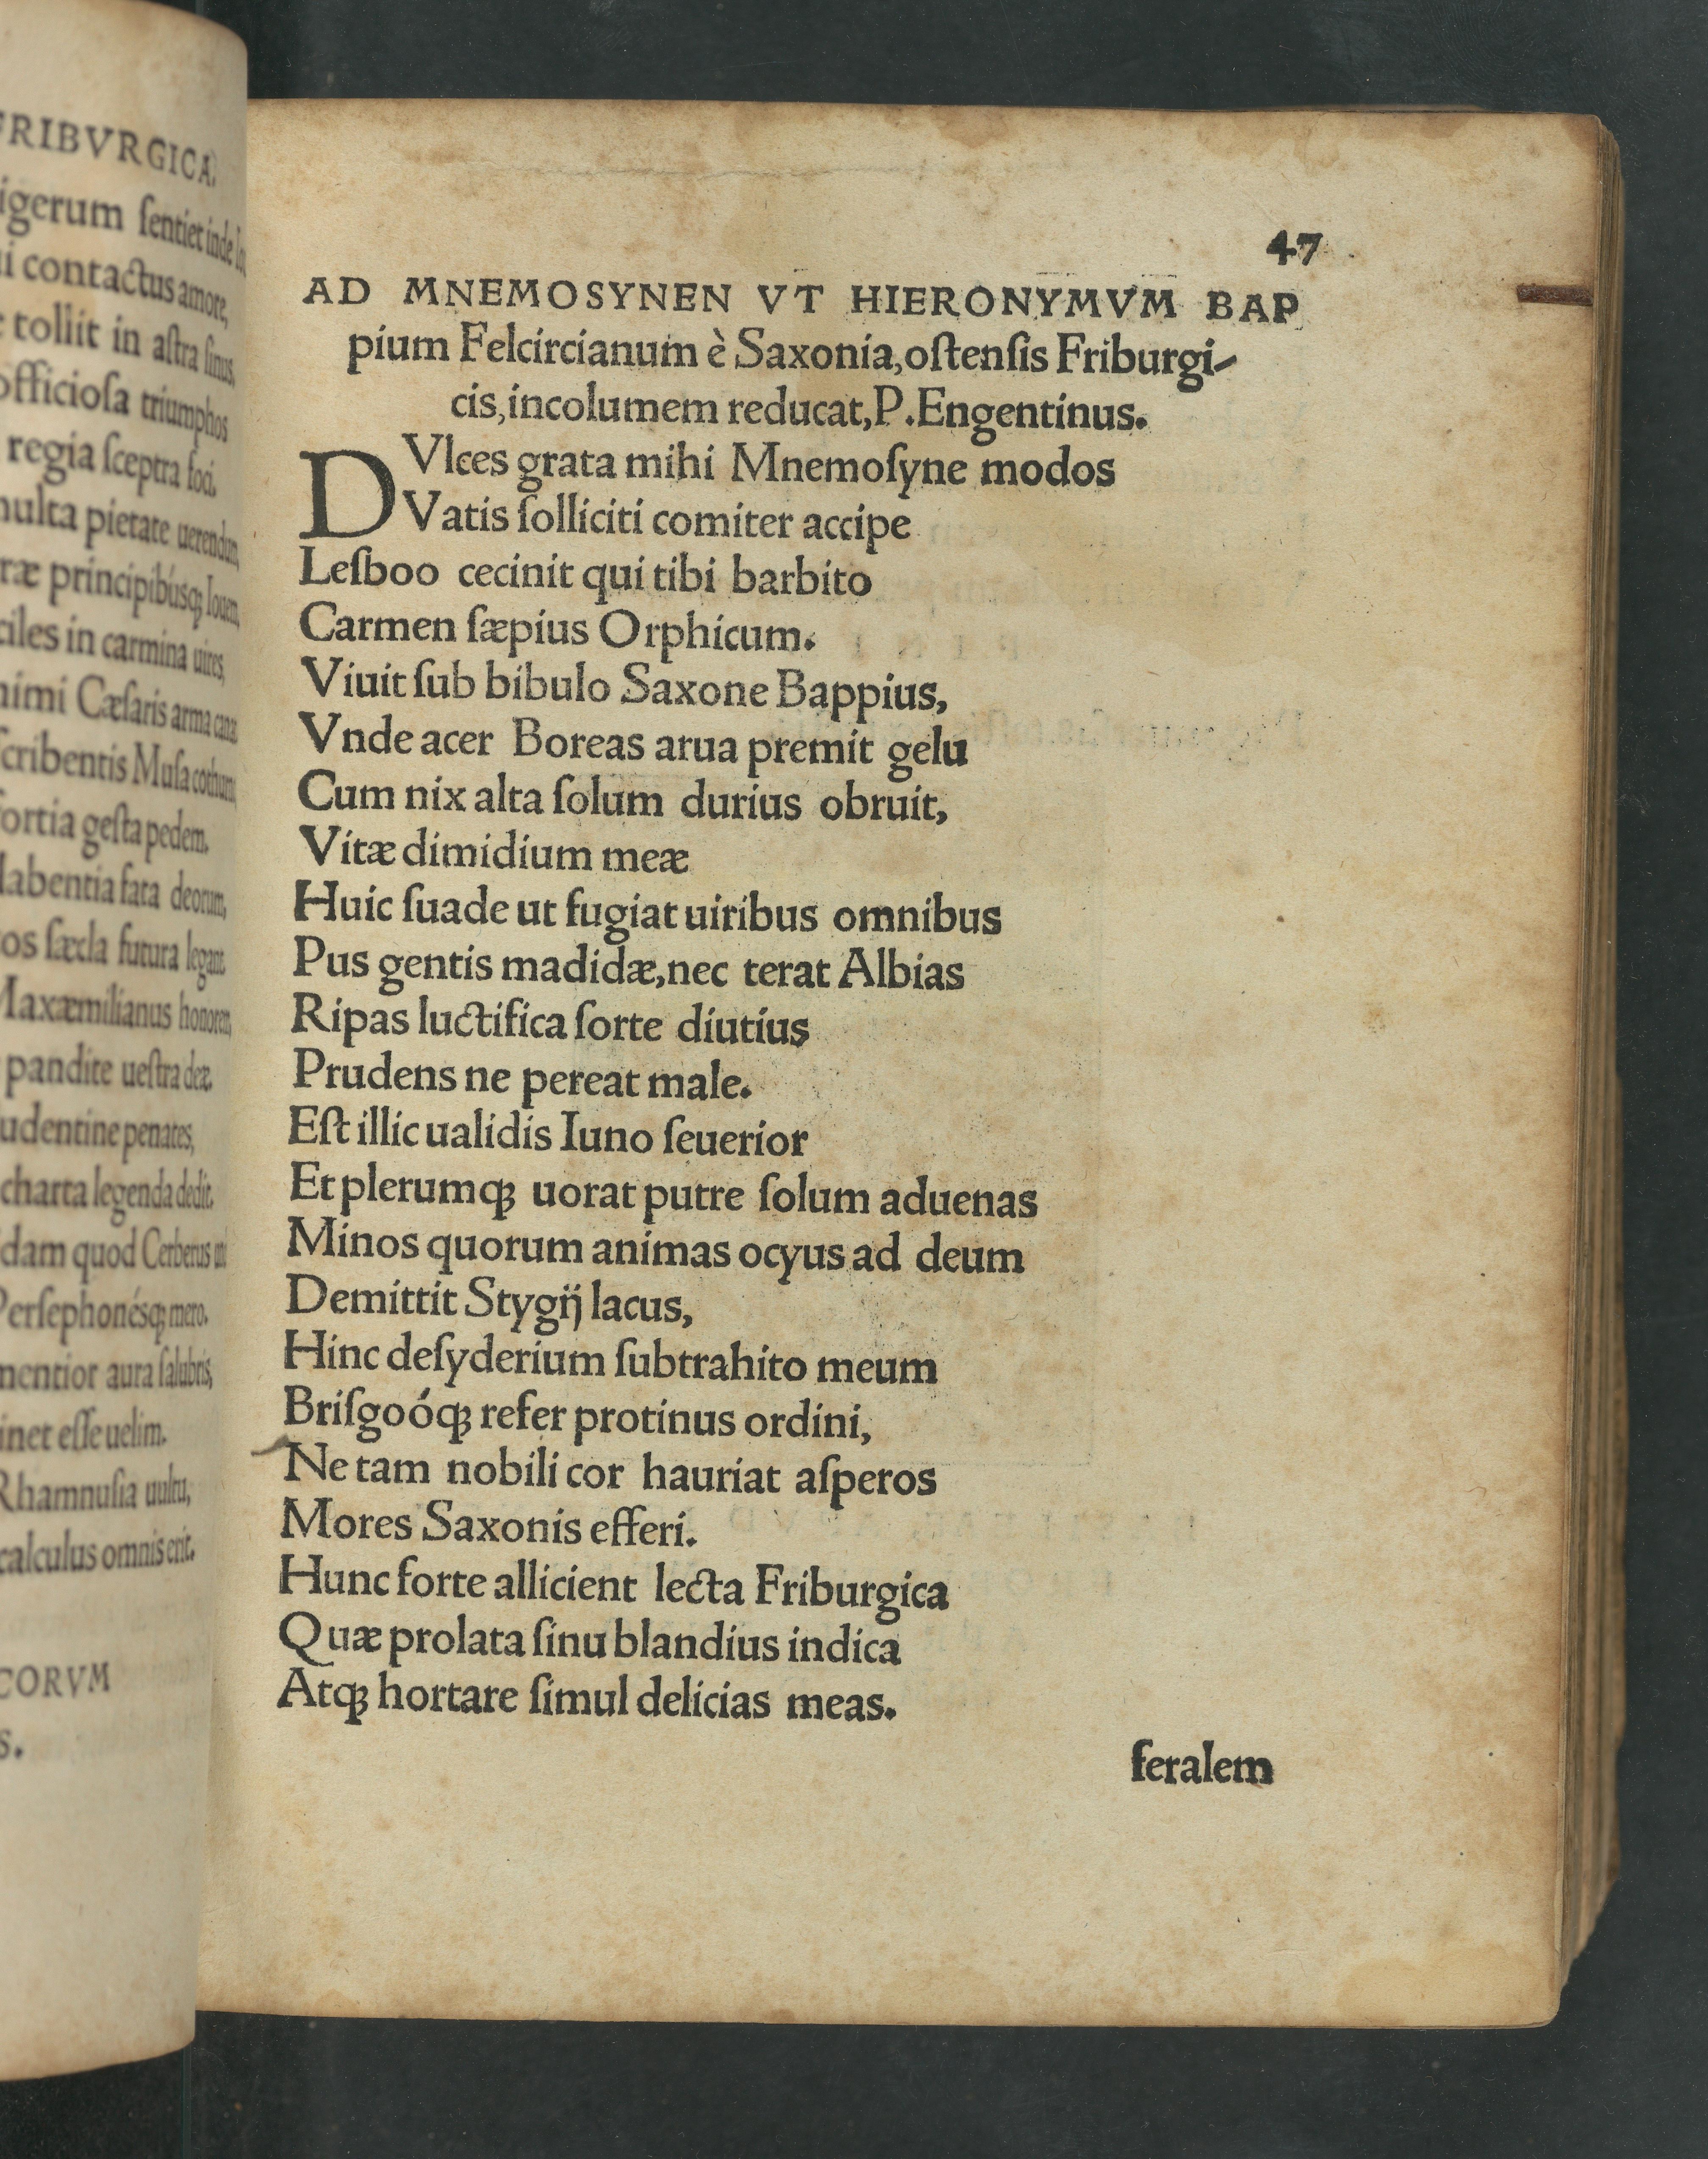 FRIBVRGICA.
igerum ſentiet inde
i contactus amore,
tollit in aſtra ſinus,
officioſa triumphos
regia ſceptra foci.
multa pietate uerendum,
ræ principibúsq; Iouem,
ciles in carmina uires,
nimi Cæſaris arma cana
ſcribentis Muſa cothurni
fortia geſta pedem.
labentia fata deorum,
os ſæcla futura legant.
Maxæmilianus honorem,
pandite ueſtra deæ.
udentine penates,
charta legenda dedit.
dam quod Cerberus
Perſephonésq; mero.
mentior aura ſalubris,
inet eſſe uelim.
Rhamnuſia uultu,
calculus omnis erit.
CORVM
s.
47
AD MNEMOSYNEN VT HIERONYMVM BAP
pium Felcircianum è Saxonia, oſtenſis Friburgi-
cis, incolumem reducat, P. Engentinus.
DVlces grata mihi Mnemoſyne modos
Vatis ſolliciti comiter accipe
Leſboo cecinit qui tibi barbito
Carmen ſæpius Orphicum.
Viuit ſub bibulo Saxone Bappius,
Vnde acer Boreas arua premit gelu
Cum nix alta ſolum durius obruit,
Vitæ dimidium meæ
Huic ſuade ut fugiat uiribus omnibus
Pus gentis madidæ, nec terat Albias
Ripas luctifica ſorte diutius
Prudens ne pereat male.
Eſt illic ualidis Iuno ſeuerior
Et plerumq; uorat putre ſolum aduenas
Minos quorum animas ocyus ad deum
Demittit Stygij lacus,
Hinc deſyderium ſubtrahito meum
Briſgoóq; refer protinus ordini,
Ne tam nobili cor hauriat aſperos
Mores Saxonis efferi.
Hunc forte allicient lecta Friburgica
Quæ prolata ſinu blandius indica
Atq; hortare ſimul delicias meas.
feralem